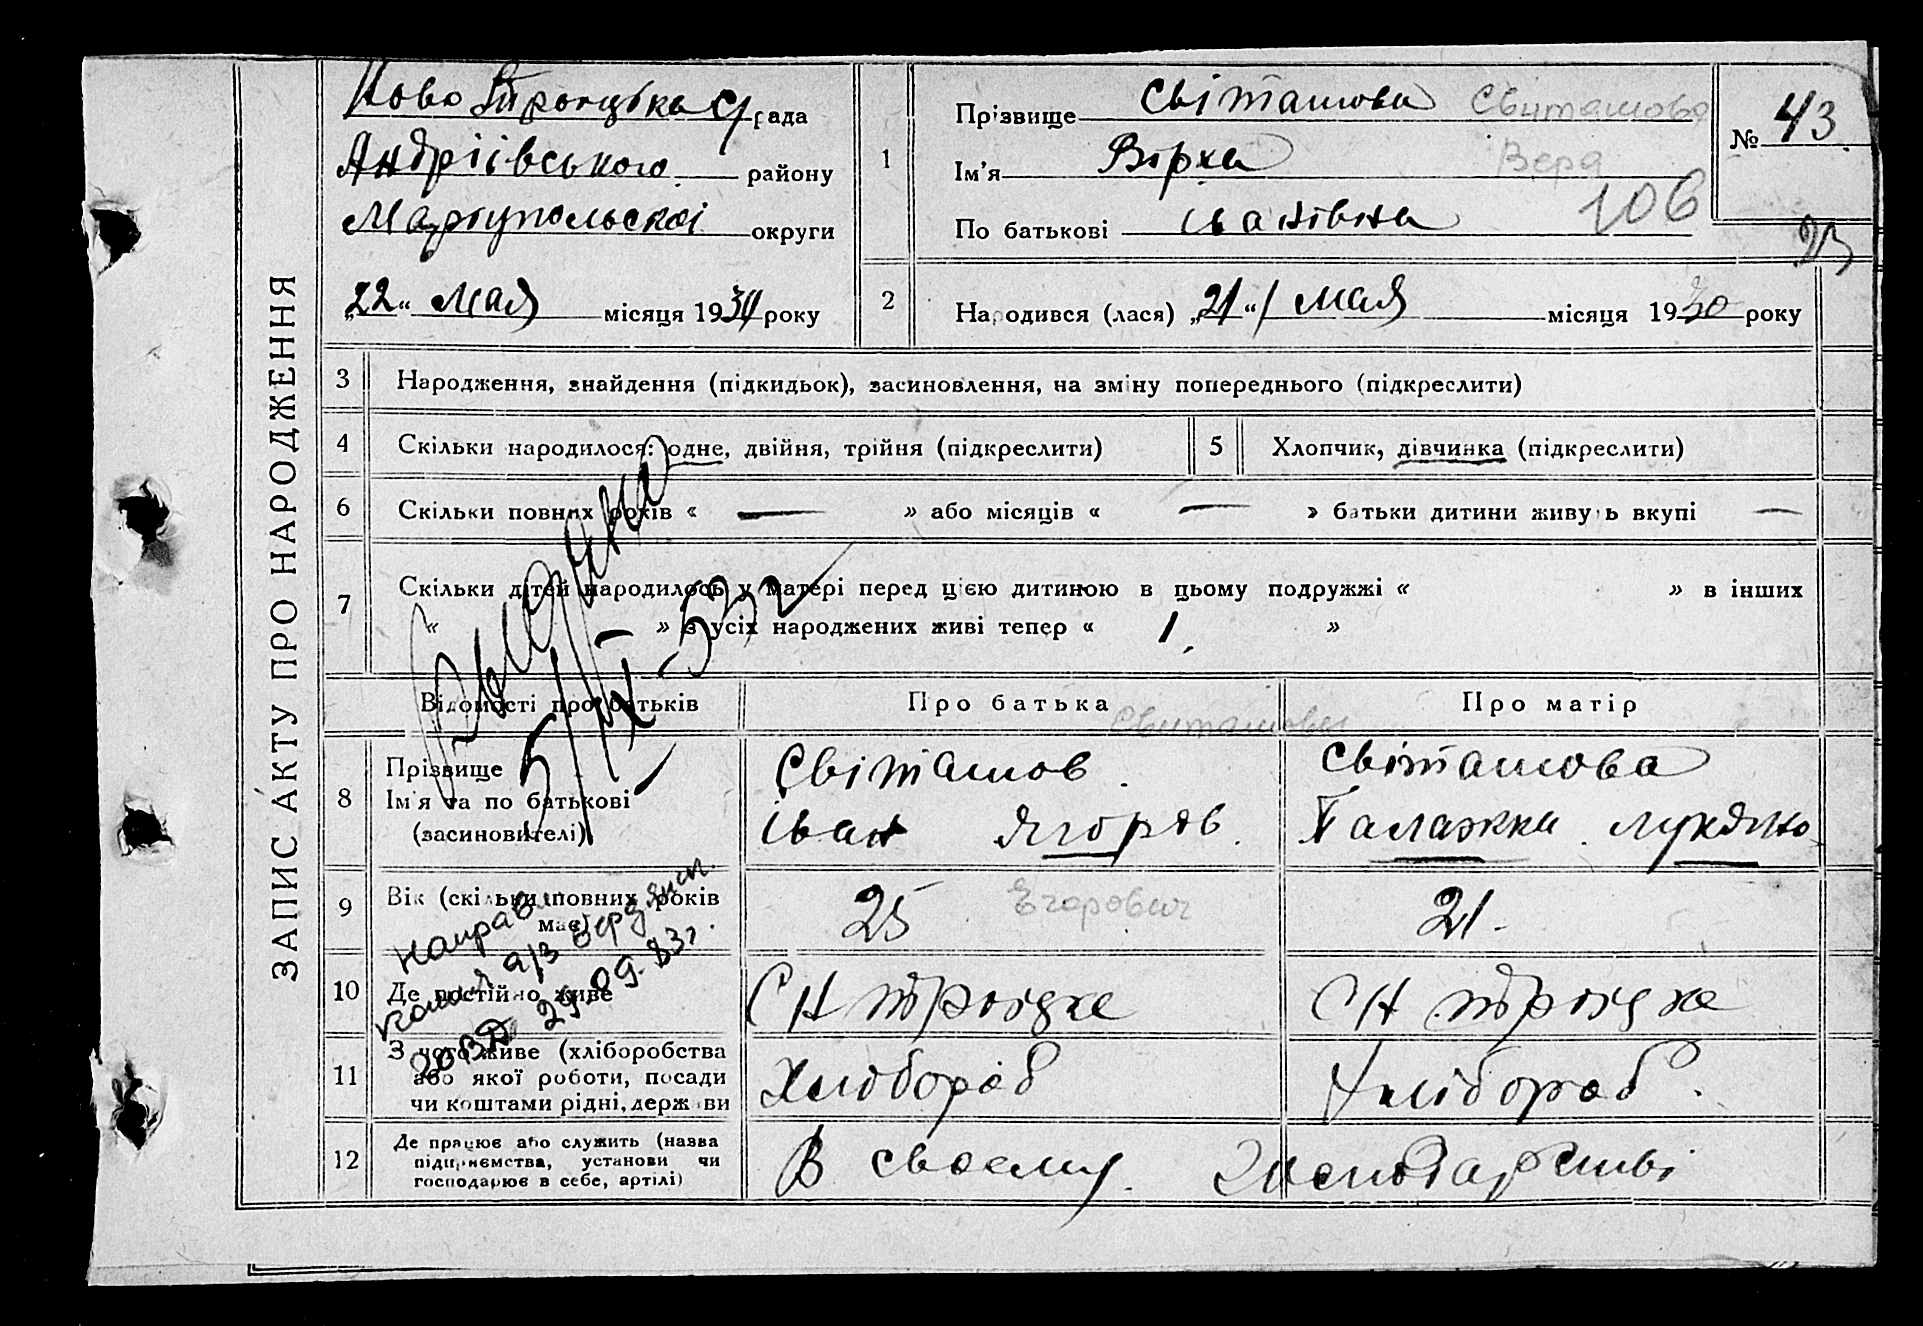 ЗАПИС АКТУ ПРО НАРОДЖЕННЯ
Ново Троіцька С/рада
Андріівського району
Маріупольскоі округи
„22“ мая місяця 1930 року
1
Прізвище Світашова Свиташова
Ім'я Вірка Вера
По батькові Іванівна 106
№ 43
23
2 Народився (лася) „21“ мая місяця 1930 року
3 Народження, знайдення (підкидьок), засиновлення, на зміну попереднього (підкреслити)
4 Скільки народилося: одне, двійня, трійня (підкреслити)
5 Хлопчик, дівчинка (підкреслити)
6 Скільки повних років « — » або місяців « — » батьки дитини живуть вкупі —
7 Скільки дітей народилось у матері перед цією дитиною в цьому подружжі « » в інших
« » з усіх народжених живі тепер « 1. »
Відомості про батьків Про батька Про матір
Свиташовы
8 Прізвище Світашов Світашова
Ім'я та по батькові Іван Ягоров. Палажка Лукяно
(засиновителі)
9 Вік (скільки повних років має) 25 Егорович 21.
10 Де постійно живе С Н Троіцке С Н Троіцке
11 З чого живе (хліборобства Хлібороб Хлібороб.
або якої роботи, посади
чи коштами рідні, держави
12 Де працює або служить (назва В своему господарстві
підприємства, установи чи
господарює в себе, артілі)
Выдано
5/IX-53г
29.09.83г.